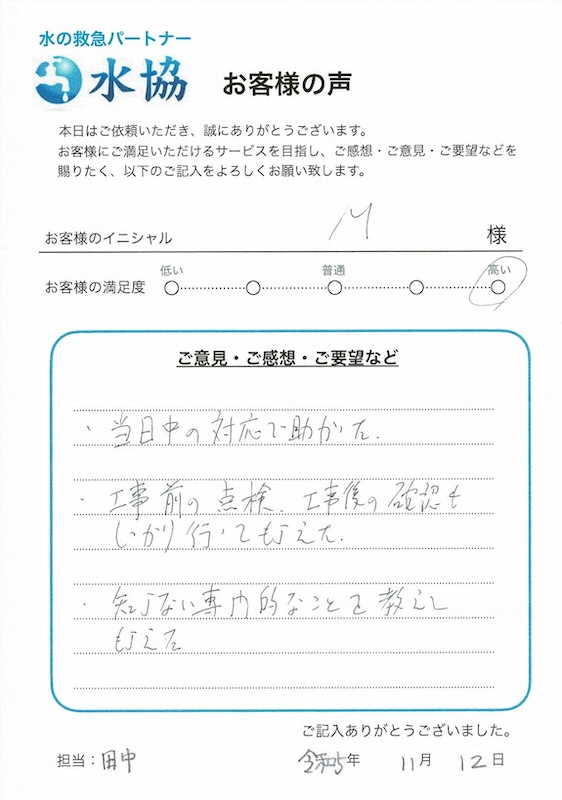 水の救急パートナー
水協 お客様の声
本日はご依頼いただき、誠にありがとうございます。
お客様にご満足いただけるサービスを目指し、ご感想・ご意見・ご要望などを
賜りたく、以下のご記入をよろしくお願い致します。
お客様のイニシャル M 様
低い 普通 高い
お客様の満足度
ご意見・ご感想・ご要望など
・当日中の対応で助かった.
・工事前の点検、工事後の確認も
しっかり行いてもらえた.
・知らない専門的なことを教えし
もらえた
ご記入ありがとうございました。
担当：田中 令和5年 11月 12日